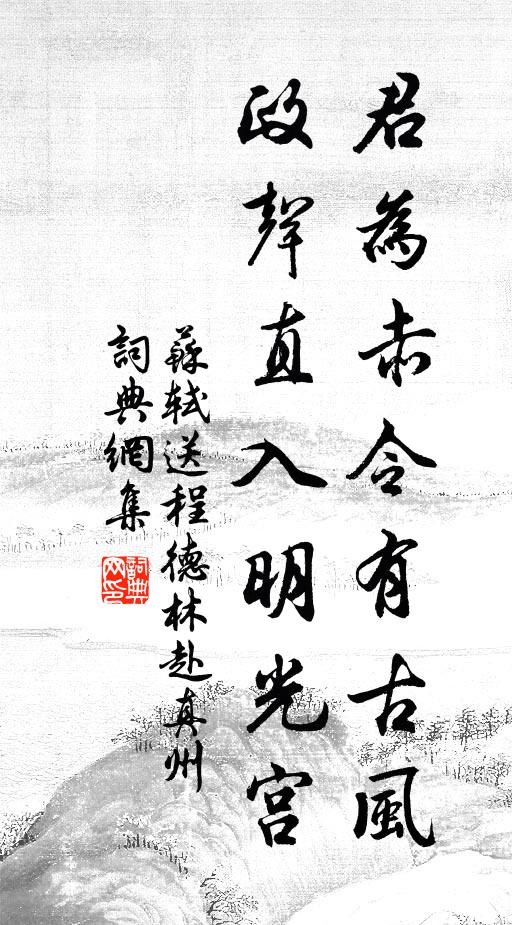 君為赤令有古風
政聲直入明光宮
蘇軾送程德林赴真州
詞典網集
詞典
网印